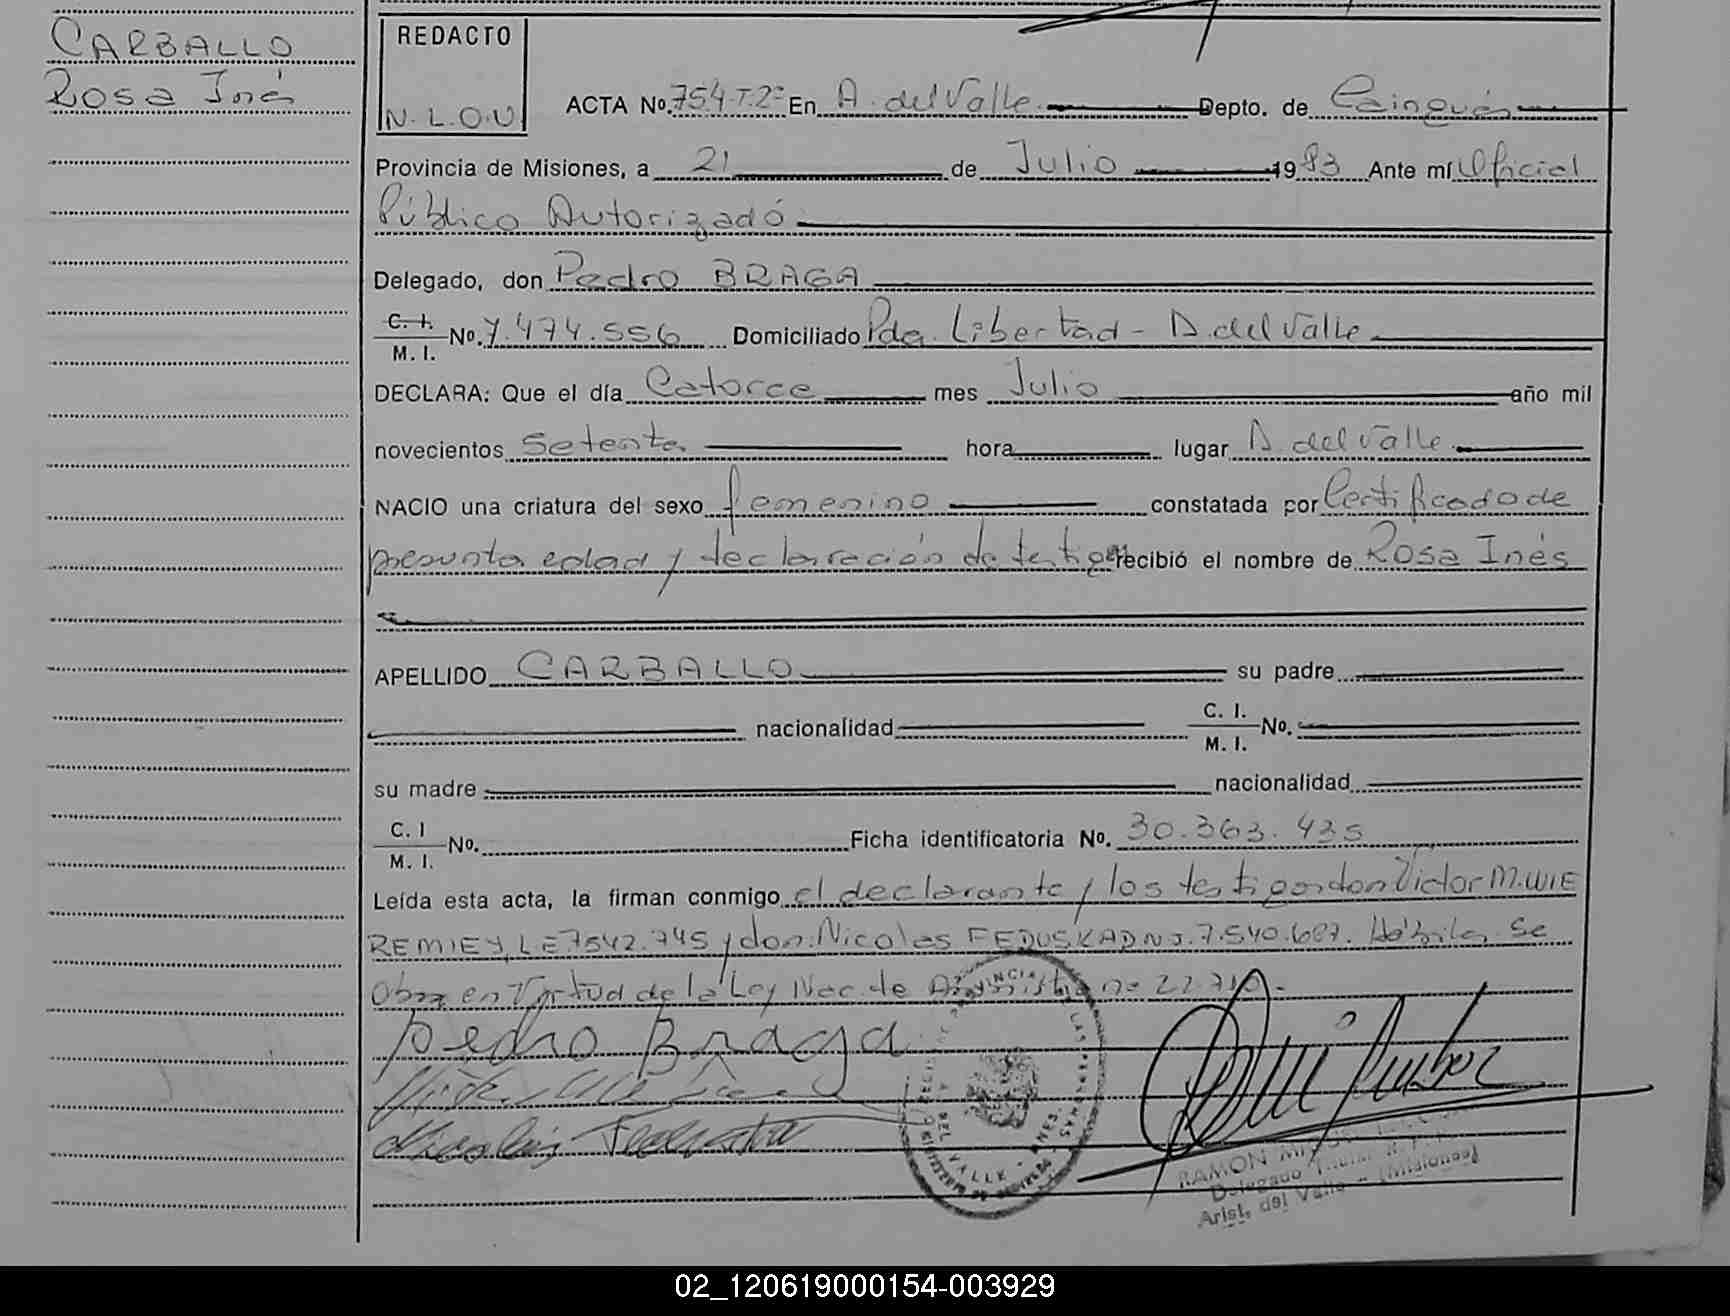 CARBALLO
Rosa Inés
REDACTO
N.L.O.U
ACTA No. 754-T.2º En A. del Valle Depto. de Cainguás
Provincia de Misiones, a 21 de Julio 1983 Ante mí Oficial
Público Autorizadó
Delegado, don Pedro BRAGA
C. I. M. I. No. 7.474.556 Domiciliado Pda. Libertad - A. del Valle
DECLARA: Que el día Catorce mes Julio año mil
novecientos setenta hora lugar A. del Valle
NACIO una criatura del sexo femenino constatada por Certificado de
presunta edad y declaración de testigos recibió el nombre de Rosa Inés
APELLIDO CARBALLO su padre
nacionalidad C. I. M. I. No.
su madre nacionalidad
C. I M. I. No. Ficha identificatoria No. 30.363.435
Leída esta acta, la firman conmigo el declarante y los testigos don Victor M. WIE
REMIEY, L.E 7542.745 y don Nicolas FEDUSKA D N I. 7.540.687. Hábiles. Se
Obra en Virtud de la Ley Nac. de Amnistia nº 22.710.-
Pedro Braga
PROVINCIA LAS PERSONAS DEL VALLE
RAMON
Delegado Titular
Arist. del Valle - (Misiones)
02_120619000154-003929